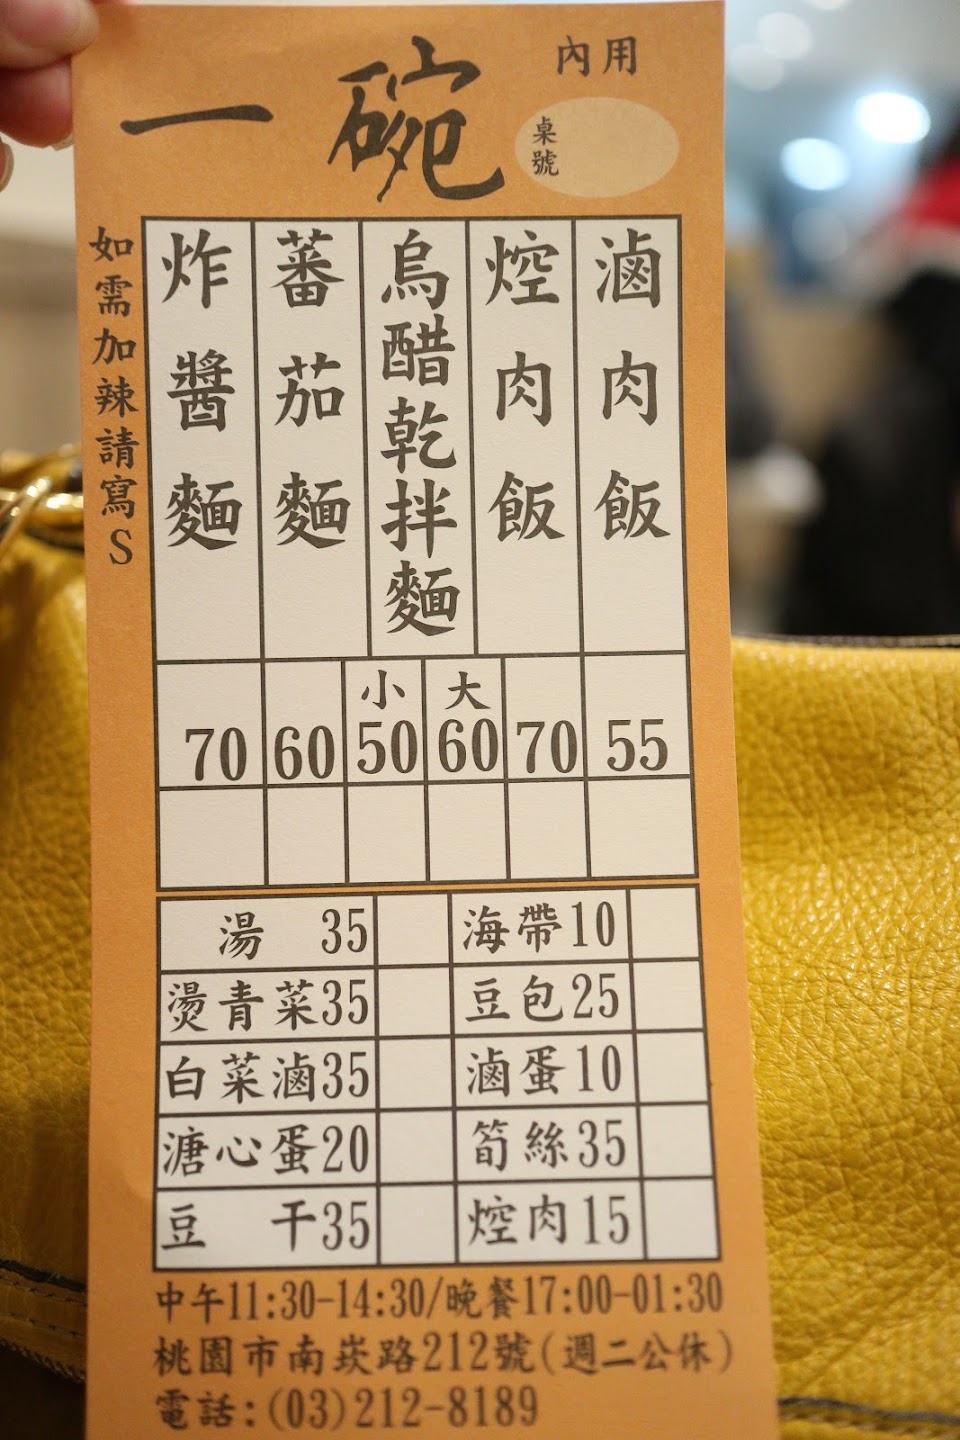 一碗
內用
桌號
如需加辣請寫S
滷肉飯
焢肉飯
烏醋乾拌麵
蕃茄麵
炸醬麵
70 60 小50 大60 70 55
湯 35 海帶10
燙青菜35 豆包25
白菜滷35 滷蛋10
溏心蛋20 筍絲35
豆干35 焢肉15
中午11:30-14:30/晚餐17:00-01:30
桃園市南崁路212號(週二公休)
電話:(03)212-8189